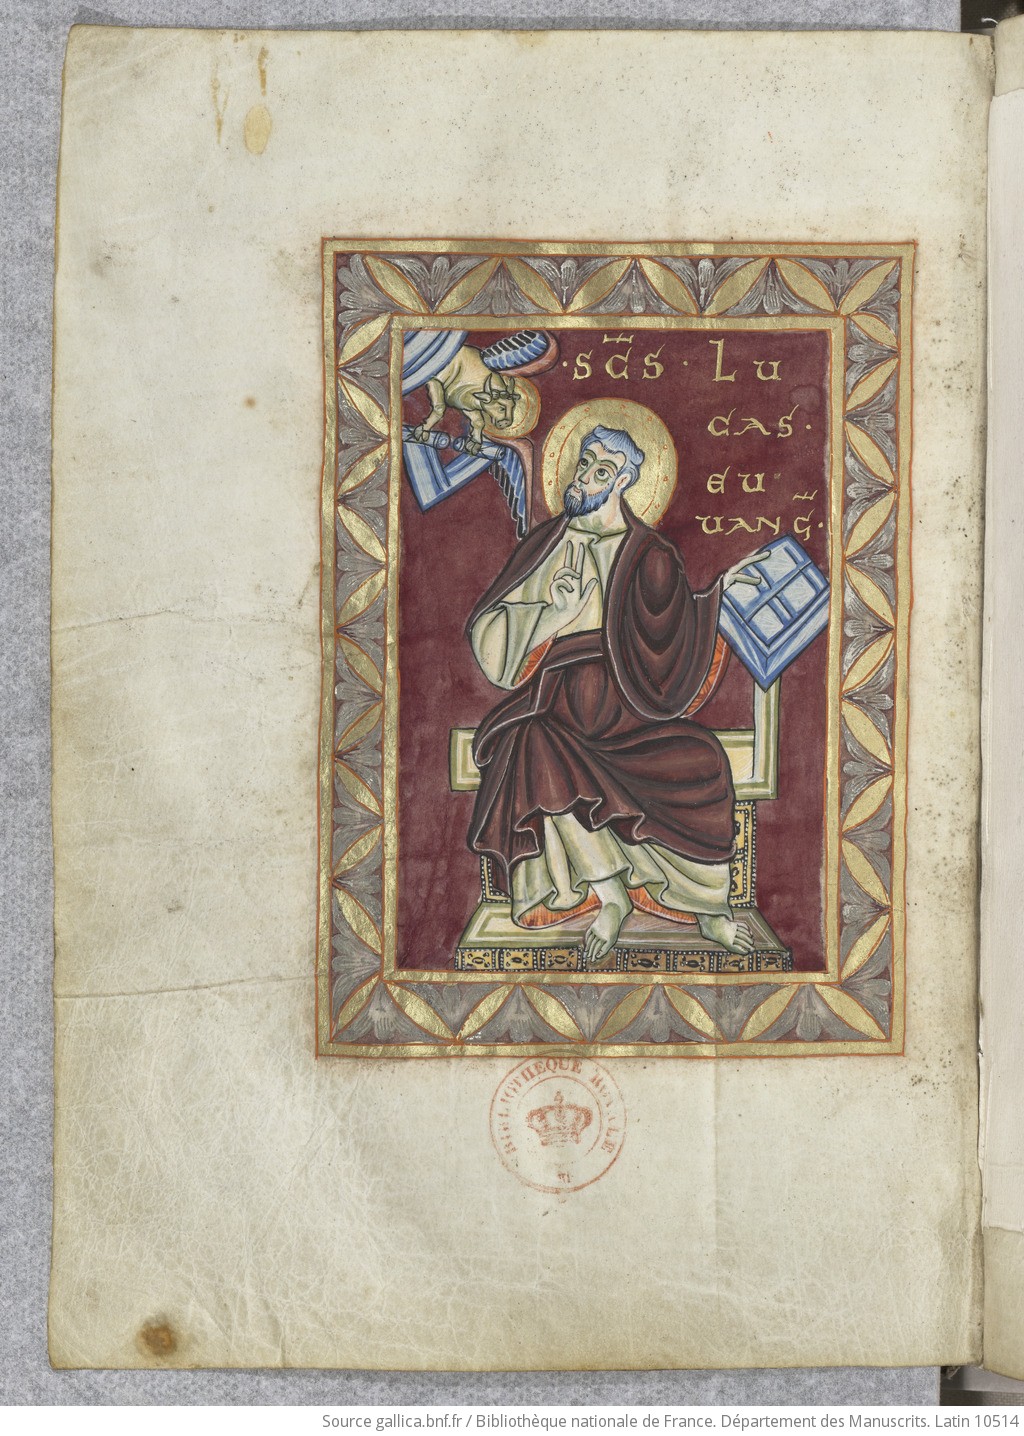 ·SC̅S· LU
CAS·
EU
UANG̅·
BIBLIOTHEQUE ROYALE
Source gallica.bnf.fr / Bibliothèque nationale de France. Département des Manuscrits. Latin 10514